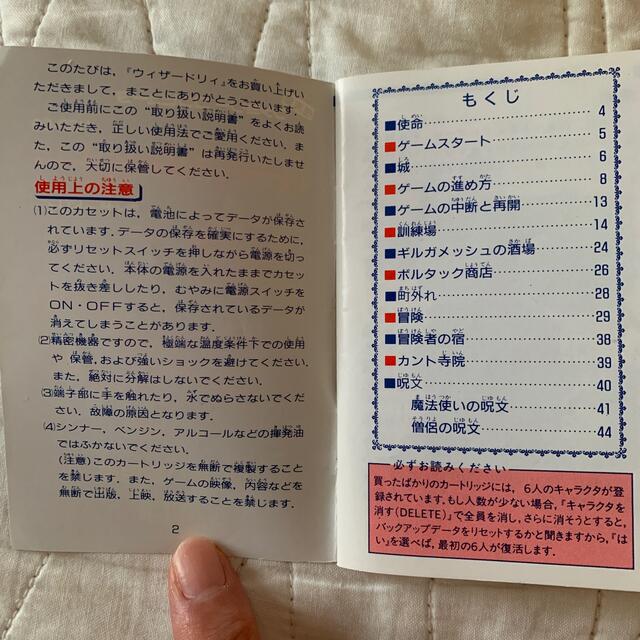 このたびは，『ウィザードリィ』をお買い上げい
ただきまして，まことにありがとうございます．
ご使用前にこの“取り扱い説明書”をよくお読
みいただき，正しい使用法でご愛用ください．ま
た，この“取り扱い説明書”は再発行いたしませ
んので，大切に保管してください．
使用上の注意
(1)このカセットは，電池によってデータが保存さ
れています．データの保存を確実にするために，
必ずリセットスイッチを押しながら電源を切っ
てください．本体の電源を入れたままでカセッ
トを抜き差ししたり，むやみに電源スイッチを
ON・OFFすると，保存されているデータが
消えてしまうことがあります．
(2)精密機器ですので，極端な温度条件下での使用
や 保管，および強いショックを避けてください．
また，絶対に分解はしないでください．
(3)端子部に手を触れたり，水でぬらさないでくだ
さい．故障の原因となります．
(4)シンナー，ベンジン，アルコールなどの揮発油
ではふかないでください．
(注意)このカートリッジを無断で複製すること
を禁じます．また，ゲームの映像，内容などを
無断で出版，上映，放送することを禁じます．
2
もくじ
■使命 4
■ゲームスタート 5
■城 6
■ゲームの進め方 8
■ゲームの中断と再開 13
■訓練場 14
■ギルガメッシュの酒場 24
■ボルタック商店 26
■町外れ 28
■冒険 29
■冒険者の宿 38
■カント寺院 39
■呪文 40
魔法使いの呪文 41
僧侶の呪文 44
必ずお読みください
買ったばかりのカートリッジには，6人のキャラクタが登
録されています．もし人数が少ない場合，「キャラクタを
消す(DELETE)」で全員を消し，さらに消そうとすると，
バックアップデータをリセットするかと聞きますから，『は
い』を選べば，最初の6人が復活します．